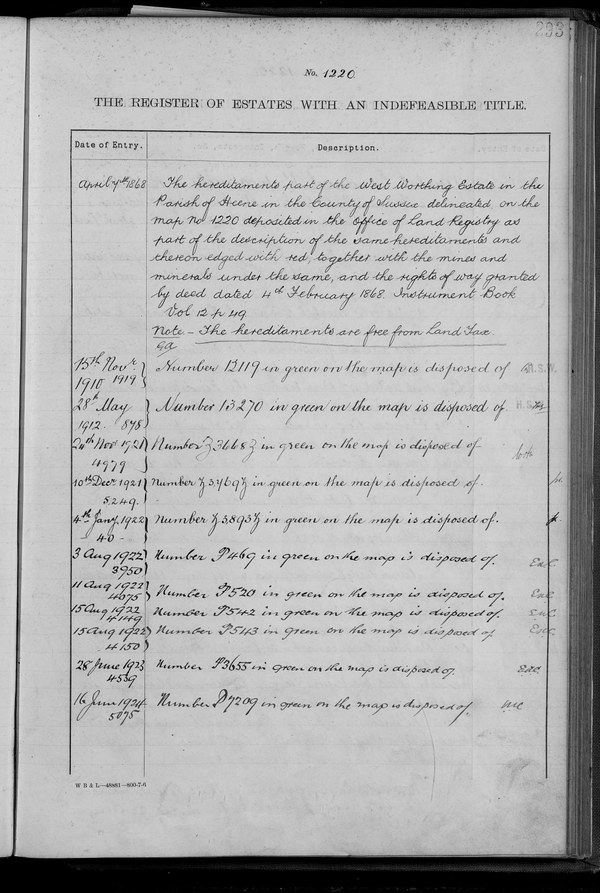 233
No. 1220
THE REGISTER OF ESTATES WITH AN INDEFEASIBLE TITLE.
Date of Entry. Description.
April 7th 1868 The hereditaments part of the West Worthing Estate in the
Parish of Heene in the County of Sussex delineated on the
map No 1220 deposited in the Office of Land Registry as
part of the description of the same hereditaments and
thereon edged with red, together with the mines and
minerals under the same, and the rights of way granted
by deed dated 4th February 1868. Instrument Book
Vol 12 p 49
Note - The hereditaments are free from Land Tax.
15th Novr. 1910 1919 Number 12119 in green on the map is disposed of
28th May 1912. 878 Number 13270 in green on the map is disposed of
24th Nov 1921 4979 Number Z 3668 Z in green on the map is disposed of
10th Decr 1921 5249. Number Z 3769 Z in green on the map is disposed of.
4th Jany. 1922 - 40 - Number Z 3893 Z in green on the map is disposed of.
3 Aug 1922 3950 Number P469 in green on the map is disposed of.
11 Aug 1922 4075 Number P520 in green on the map is disposed of.
15 Aug 1922 4149 Number P542 in green on the map is disposed of.
15 Aug 1922 4150 Number P543 in green on the map is disposed of
28 June 1923 4539 Number P3655 in green on the map is disposed of.
16 June 1924 5075 Number P7209 in green on the map is disposed of.
W B & L—48881—800-7-6